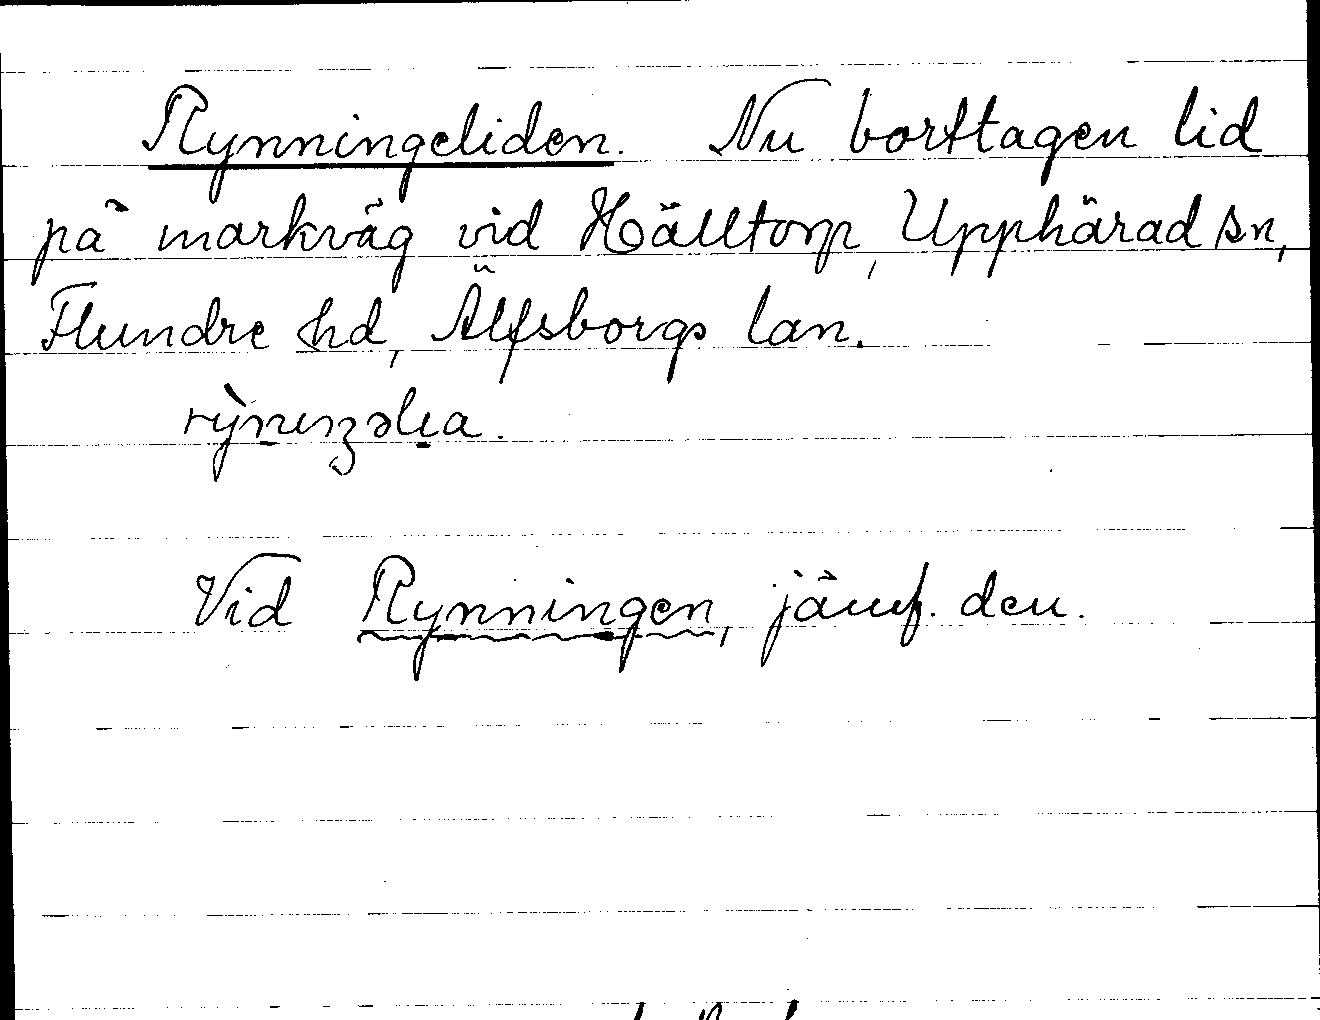 Rynningeliden. Nu borttagen lid
på markväg vid Hälltorp, Upphärad sn,
Flundre hd, Älfsborgs lan.
Vid Rynningen, jämf. den.